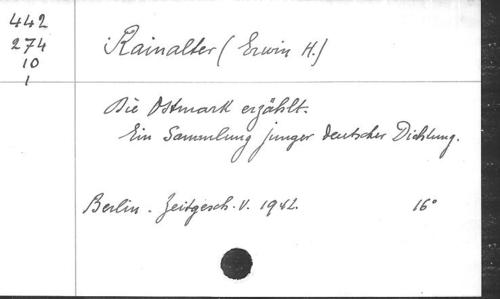 442
274
10
1
Rainalter (Erwin H.)
Die Ostmark erzählt.
Ein Sammlung junger deutscher Dichtung.
Berlin. Zeitgesch. V. 1942. 16°